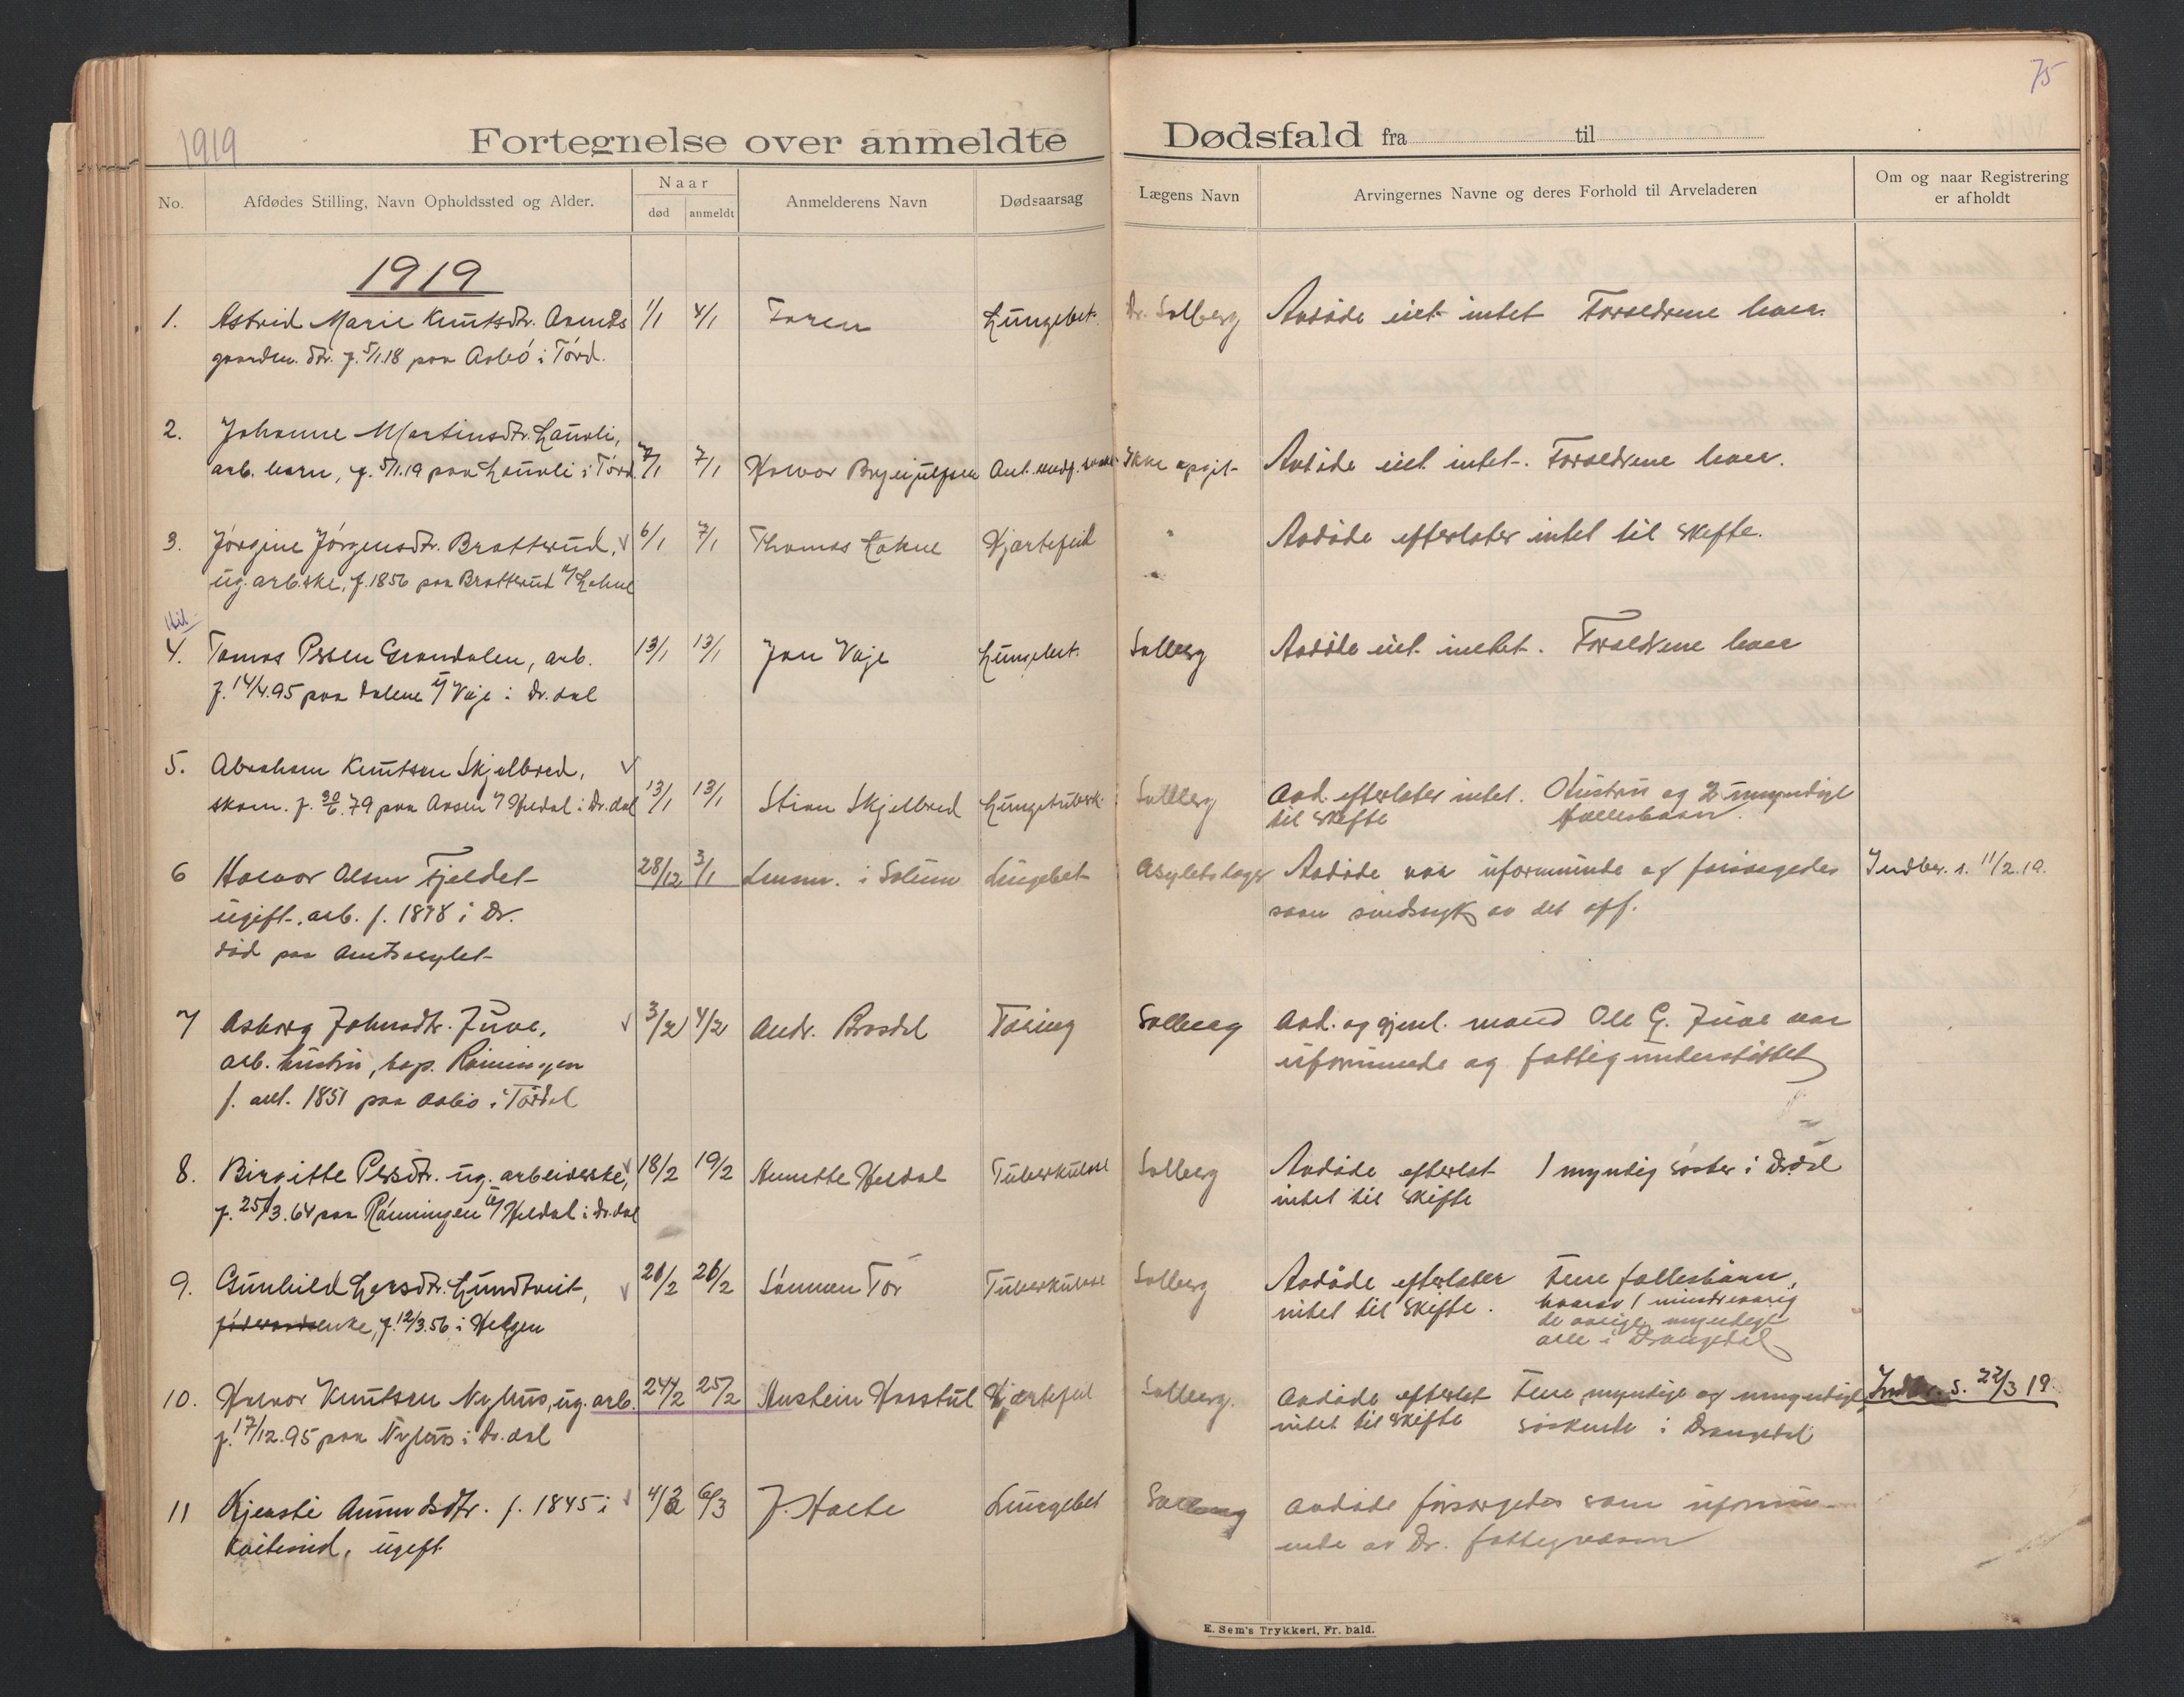 75
1919
Fortegnelse over anmeldte Dødsfald fra til
No.
Afdødes Stilling, Navn Opholdssted og Alder.
Naar
død
anmeldt
Anmelderens Navn
Dødsaarsag
Lægens Navn
Arvingernes Navne og deres Forhold til Arveladeren
Om og naar Registrering
er afholdt
1919
1. Astrid Marie Knutsdtr. 1/1 4/1 Faren Lungebet. Dr. Solberg Avdöde eiet intet Foreldrene lever.
gaarden. dtr. f. 5/1.18 paa Aasbö i Törd.
2. Johanne Martinsdtr. Lauvli,
arb. barn, f. 5/1.19 paa Lauvli i Törd. 7/1 7/1 Halvor Ikke opgit Avdöde eiet intet. Foreldrene lever.
3. Jörgine Jörgensdtr. Bratterud, 6/1 7/1 Thomas Lakue Hjertefeil " Avdöde efterlater intet til skifte.
ug. arb.ske, f. 1856 paa Bratterud u/ Lakue "
4. Tomas Persen Grondalen, arb. 13/1 13/1 Jon Vaje Lungebet. Solberg Avdöde eiet intet. Foreldrene lever
f. 14/4.95 paa dalene u/ Vaje i Dr.dal
5. Abraham Knutsen Skjelbred,
skom. f. 30/6.79 paa Aasen u/ Heldal i Dr.dal 13/1 13/1 Stian Skjelbred Lungetuberk. Solberg Avd. efterlater intet. Hustru og 2 umyndige
til skifte fellesbarn.
6 Halvor Olsen Fjeldet 28/12 3/1 Lensm. i Solum Lungebet Asylets læge Avdöde var uformuende og forsörgedes Indber. s. 11/2.19.
ugift. arb. f. 1878 i Dr. som sindssyk av det off.
död paa Amtsasylet
7 Asborg Johnsdtr. Juve, 3/2 4/2 Andr. Brosdal Tæring Solberg Avd. og gjenl. mand Ole G. Juve var
arb. hustru, bop. Rönningen uformuende og fattigunderstöttet
f. 1851 paa Aasbö i Tördal
8. Birgitte Persdtr. ug. arbeiderske, 18/2 19/2 Annette Heldal Tuberkulose Solberg Avdöde efterlot 1 myndig söster i Dr.dal
f. 25/3.64 paa Rönningen u/ Heldal i Dr.dal intet til skifte
9. Gunhild Larsdtr. Lundtveit, 20/2 26/2 Sönnen Tor Tuberkulose Solberg Avdöde efterlater Fere fellesbarn,
enke, f. 12/3.56 i Helgen intet til skifte. hvorav 1 mindreaarig
de övrige myndige
alle i Drangedal
10. Halvor Knutsen Nyhus, ug. arb. 24/2 25/2 Anstein Hjertefeil Solberg. Avdöde efterlot Fere myndige og umyndige Indb. s. 22/3 19.
f. 17/12.95 paa Nyhus i Dr.dal intet til skifte söskende i Drangedal
11 Kjersti Amundsdtr. f. 1845 i 4/3 6/3 J. Holte Lungebet Solberg Avdöde forsörgedes som uformu-
ugift ende av Dr. fattigvæsen
E. Sem's Trykkeri, Fr. hald.